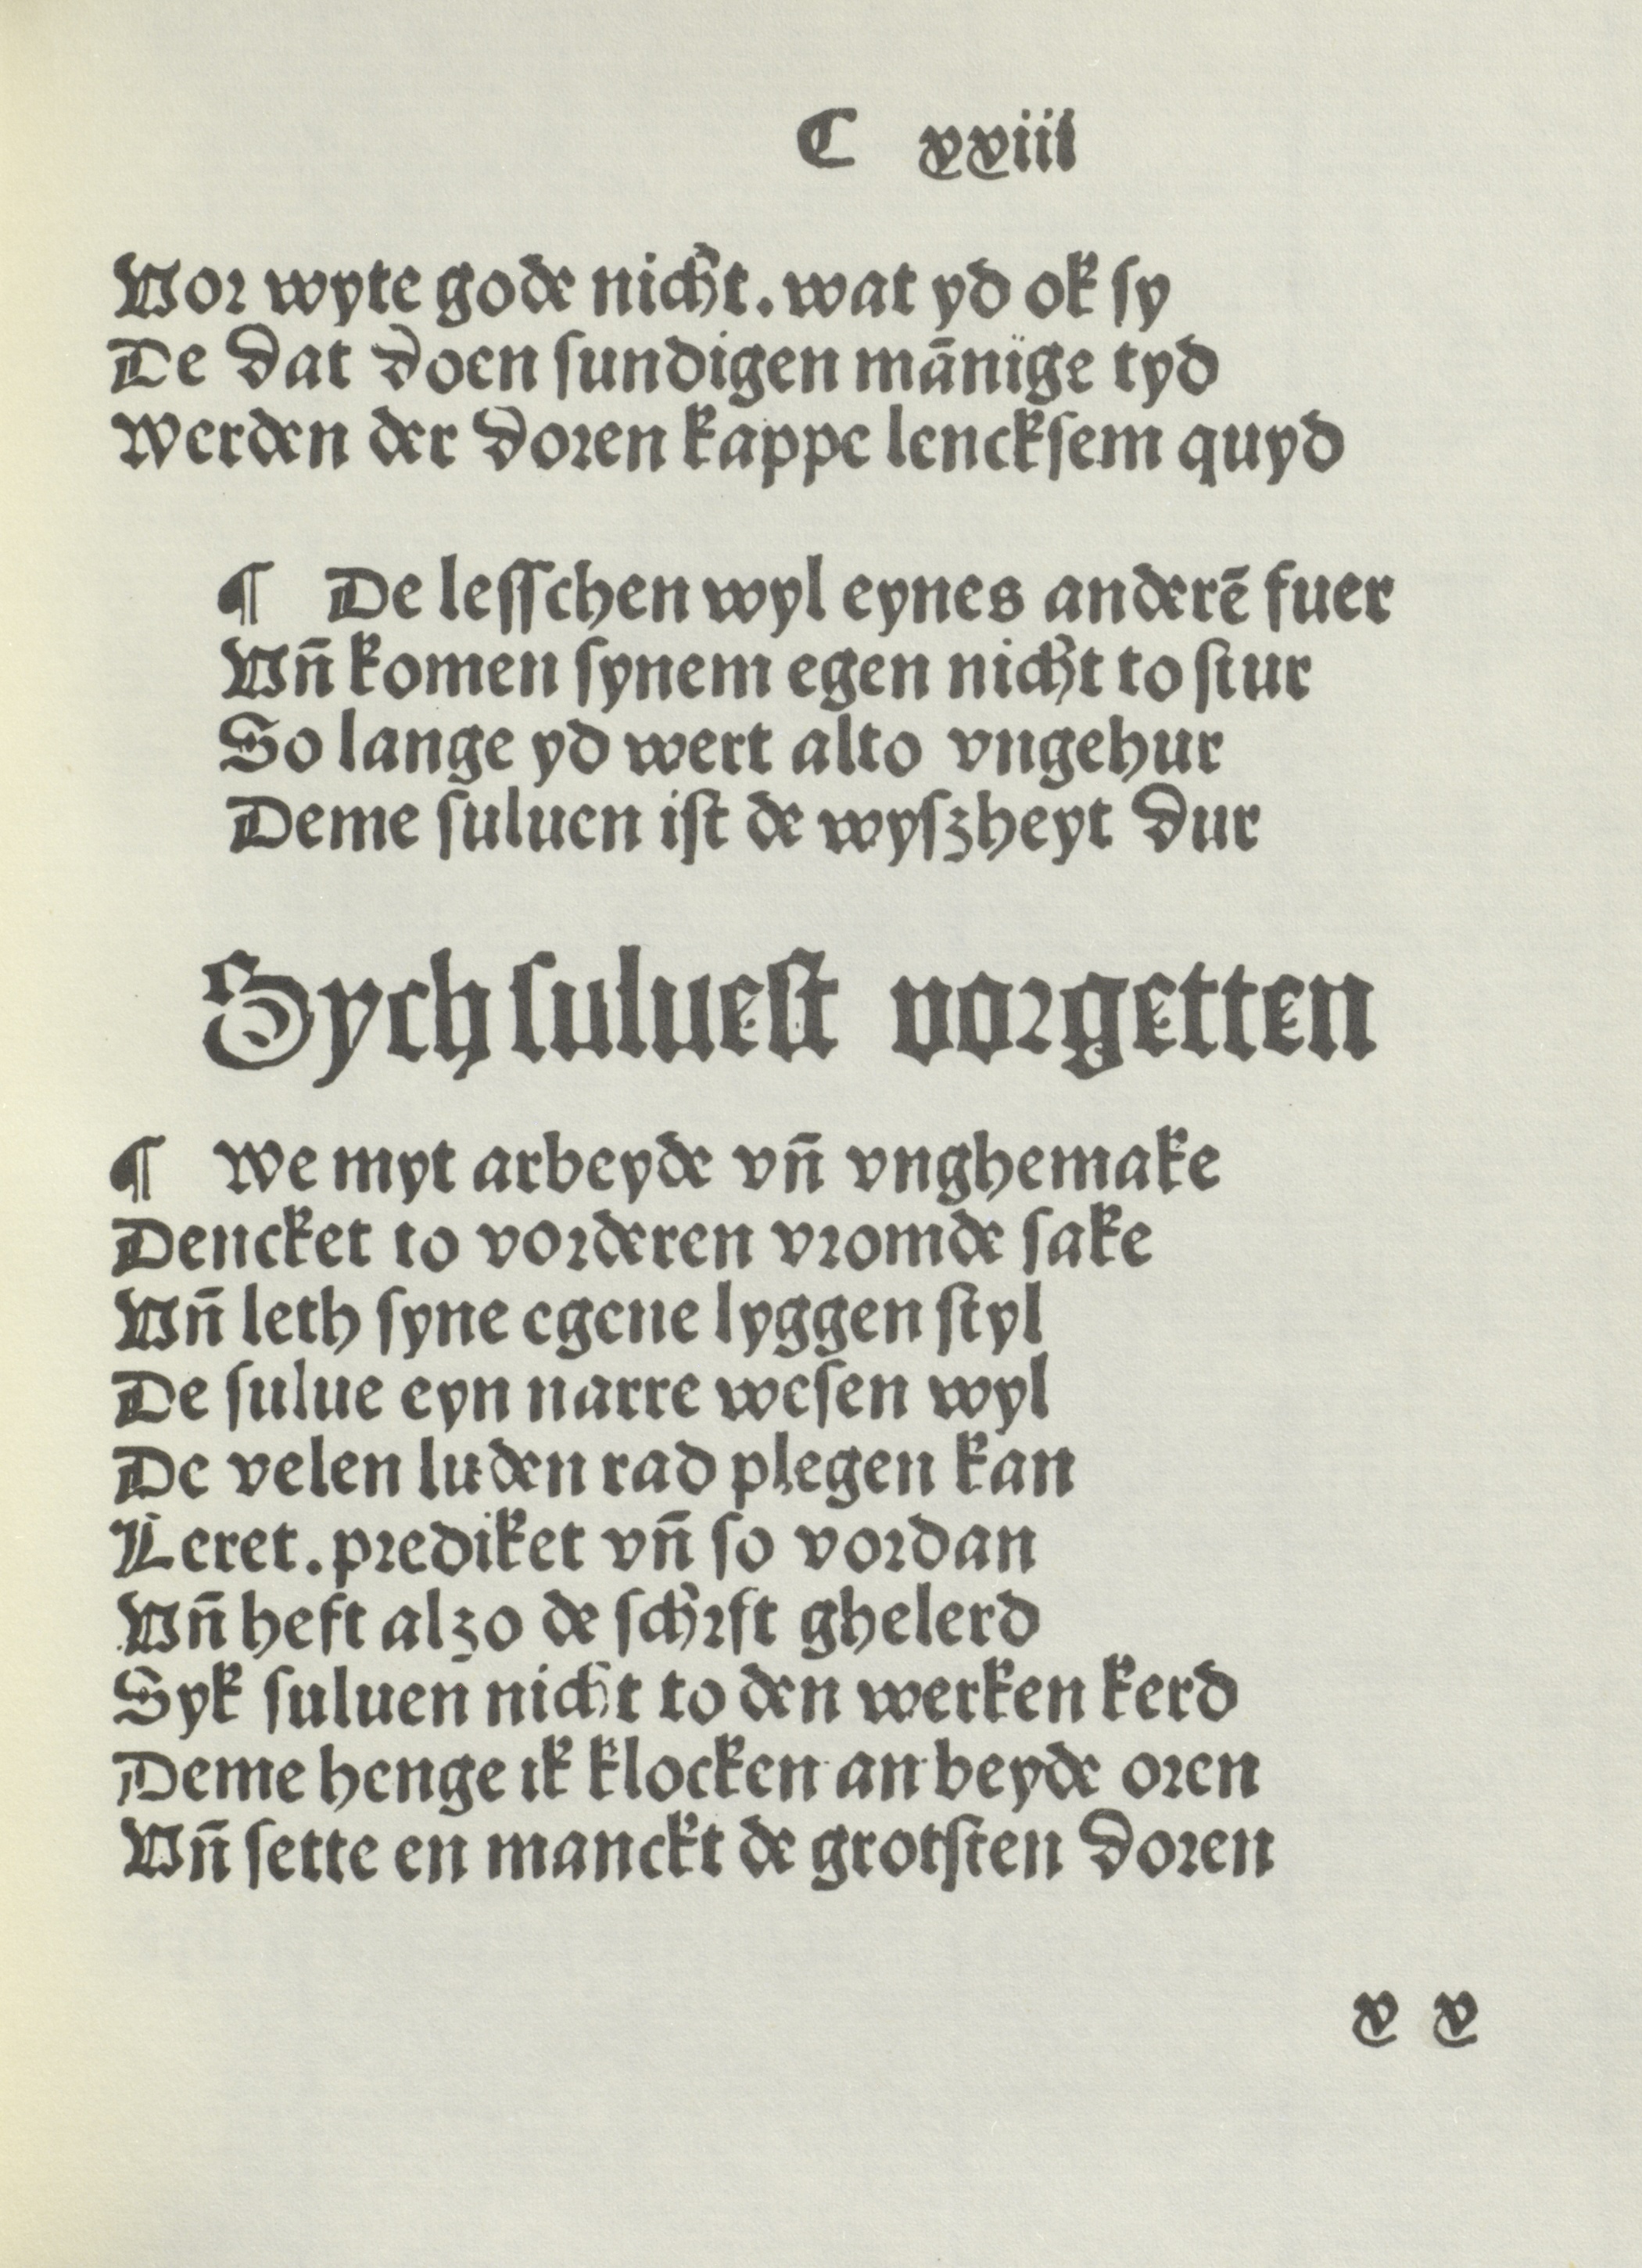 C xxiiii
Vor wyte gode nicht. wat yd ok sy
De dat doen sundigen mānige tyd
Werden der doren kappe lencksem quyd
¶ De lesschen wyl eynes anderē fuer
Vn̄ komen synem egen nicht to stur
So lange yd wert alto vngehur
Deme suluen ist de wyszheyt dur
Sych suluest vorgetten
¶ We myt arbeyde vn̄ vnghemake
Dencket to vorderen vromde sake
Vn̄ leth syne egene lyggen styl
De sulue eyn narre wesen wyl
De velen luden rad plegen kan
Leret. prediket vn̄ so vordan
Vn̄ heft alzo de schrft ghelerd
Syk suluen nicht to den werken kerd
Deme henge ik klocken an beyde oren
Vn̄ sette en manckt de grotsten doren
x x